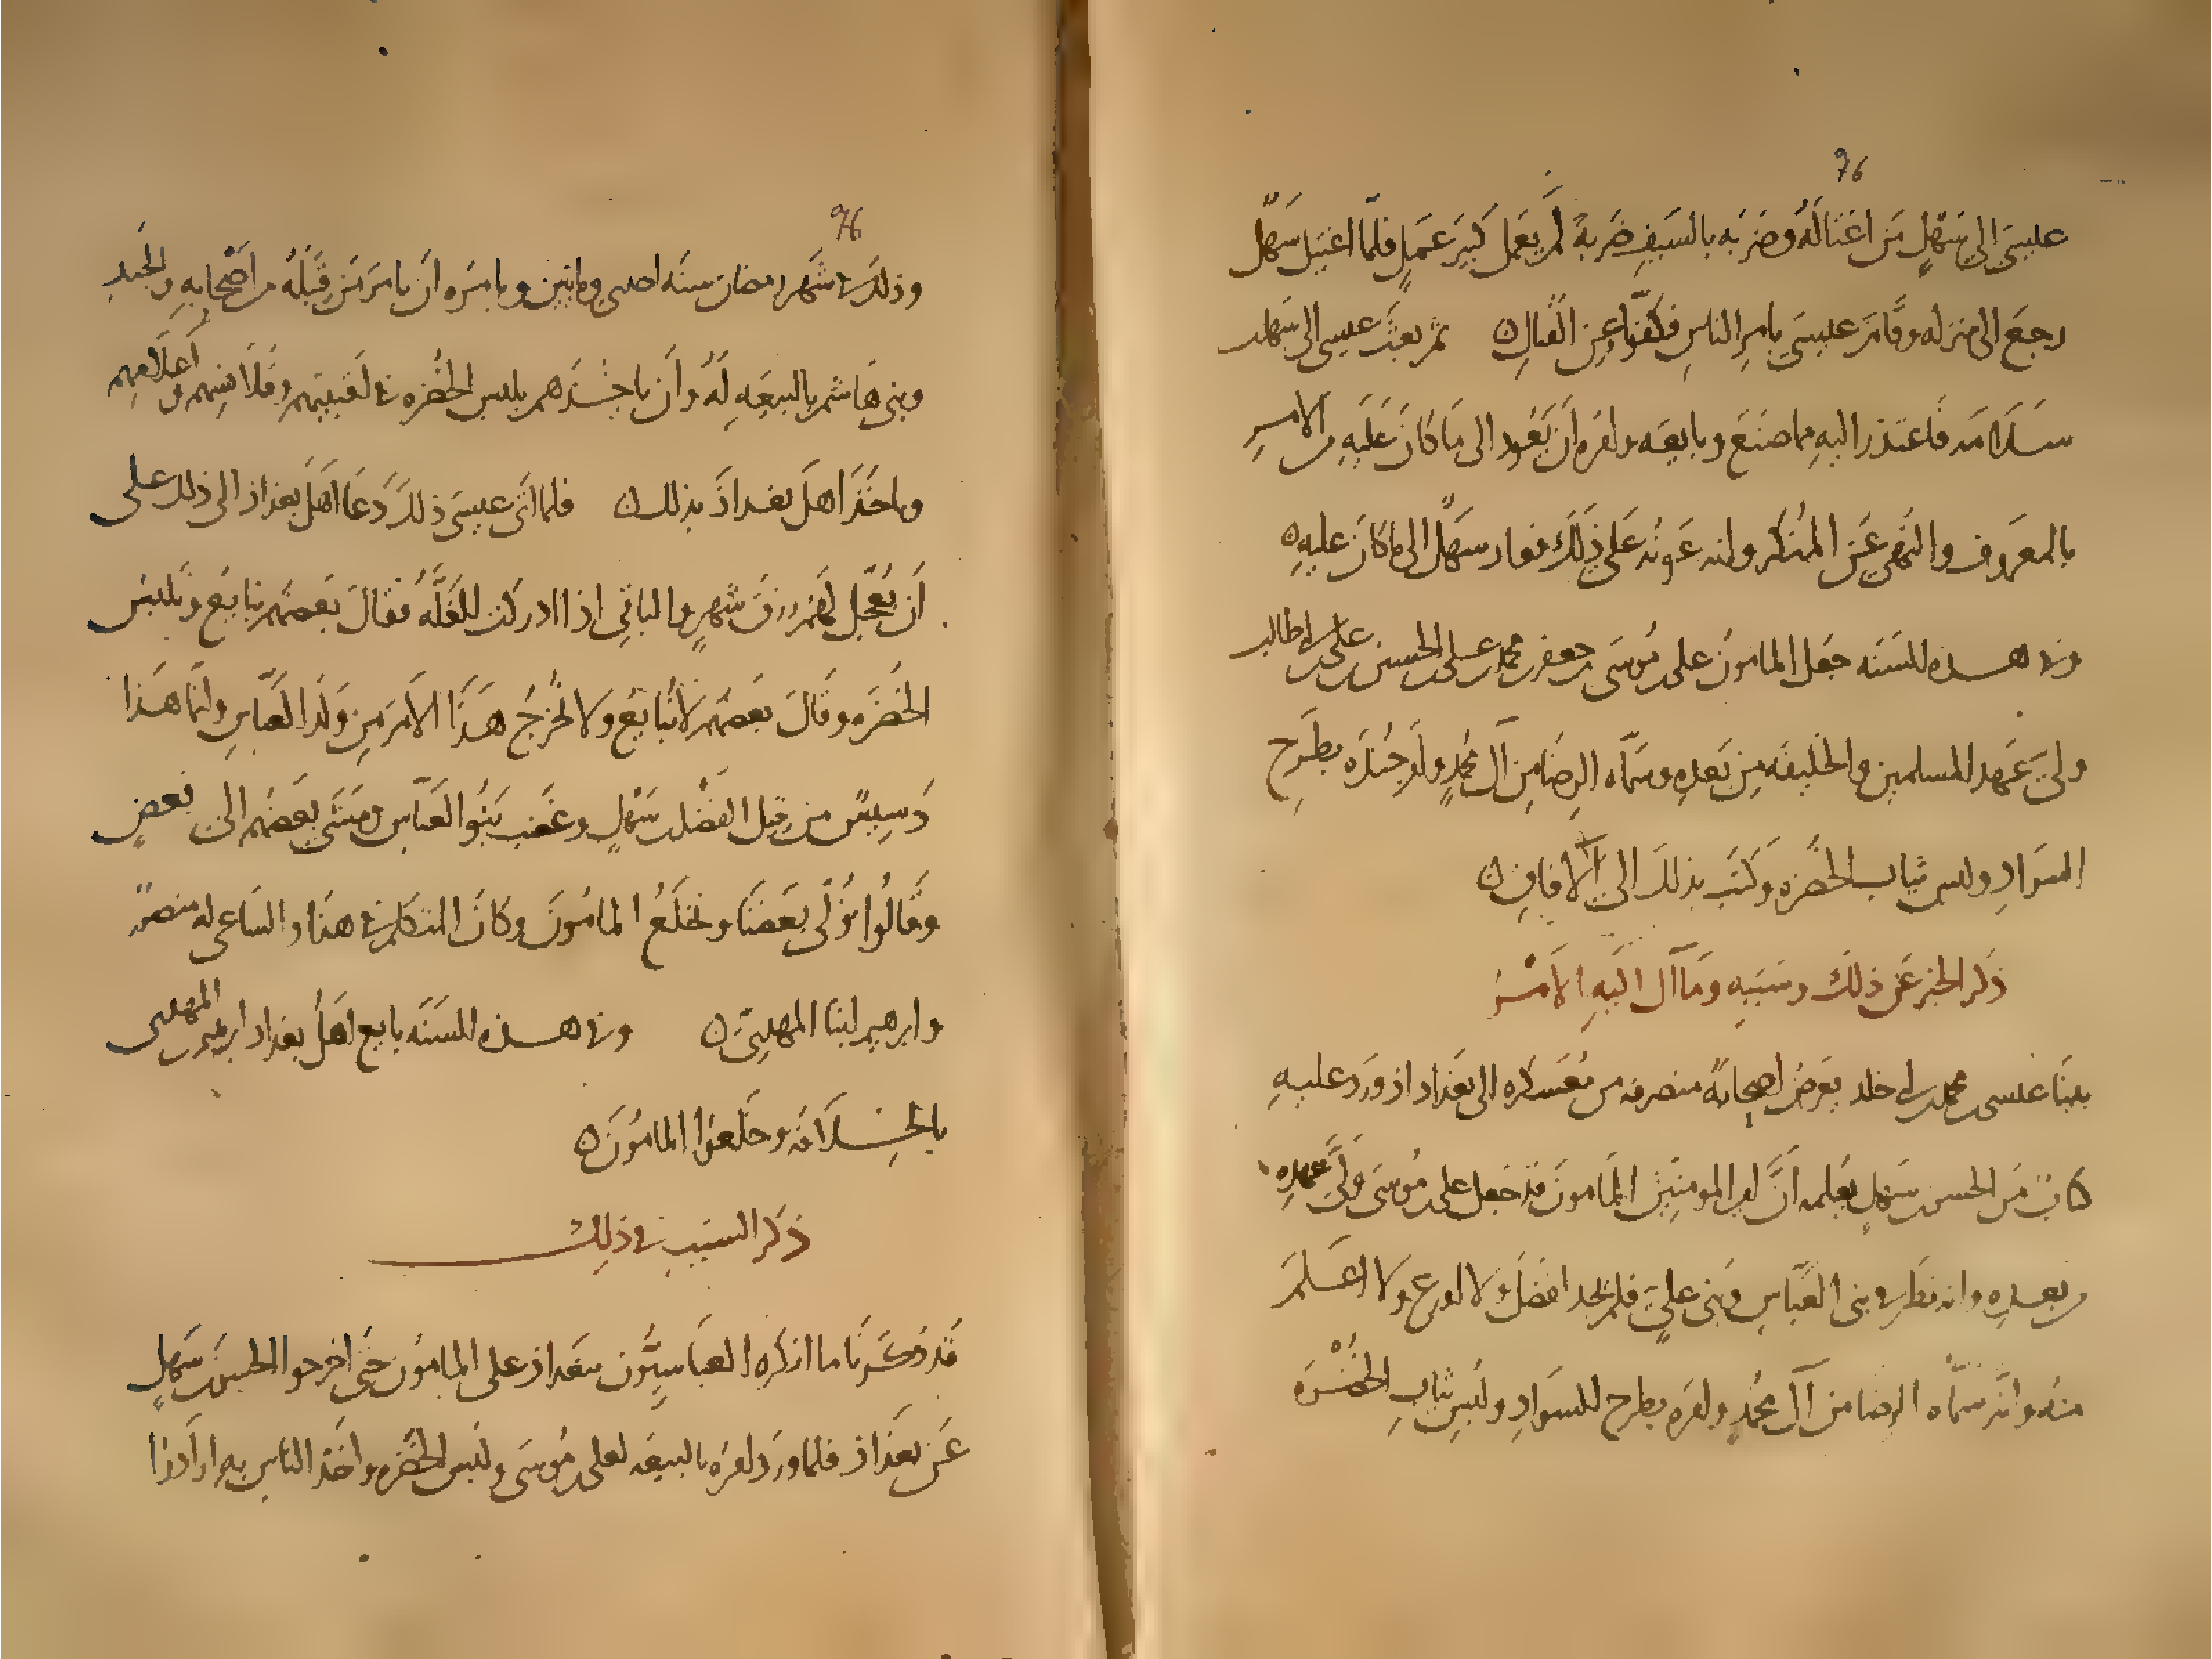 ٩٦
عيسى الى سَهْلٍ مَن اغتَالَهُ وضَرَبَه بالسَيفِ ضَربةً لَم يَعمَل كبيرَ عَمَلٍ فلمّا اغتيل سَهْلٌ
رجعَ الى منزله وقامَ عيسىَ بامرِ الناسِ فكفّوا عن القتالِ ثم بعثَ عيسى الى سهل بن
سَلَامَه فاعتذر اليهِ مما صنَعَ وبايعَه وامَره أن يَعُود الى مَا كانَ عَلَيهِ من الامرِ
بالمعَروف والنهى عَن المُنكر وانه عَونُه عَلى ذَلكَ فعاد سهلٌ الى ما كانَ عليهِ
وفى هـذه السَنَه جَعَل المامونُ على بن مُوسَى بن جعفر بن محمد بن على بن الحسين بن على بن ابى طالب
ولىَّ عَهد المسلمين والخليفَه مِن بَعدِه وسَمّاه الرِضَا مِن آل محُمدٍ وامَر جُندَه بطَرحِ
السَوادِ ولبس ثياب الخُضْرَه وَكتَب بذلكَ الى الآفاقِ
ذكر الخبر عَن ذلكَ وسَبَبِه ومَا آل اليَه الاَمْرُ
بينَا عيسى بن محمد بن ابى خلد يَعرضُ اصحابَهُ منصرفه من مُعَسكره الى بغداد اذ ورَدَ عليهِ
كتابٌ مَن الحسن بن سَهلٍ يُعلمه أنَّ امير المومنِين المامونَ قد جَعَل على بن مُوسَى وَلىَّ عهدِه
من بعدِه وانه نظَر فى بنى العَبّاسِ وَبنى علىٍّ فلم يَجد افضَلَ ولا اورع ولا اعلَمَ
منه وانّه سمّاه الرضا من آل محُمدٍ وامَره بطرح السَوادِ ولبُسِ ثيابِ الخُضْرَه
٩٦
وذلكَ فى شَهر رمضان سنَه احدى ومايتين ويامرُه أن يامرَ مَن قِبَلَهُ من اَصْحابِهِ والجُندِ
وبنى هَاشم بالبيَعهِ لَهُ وأن ياخُـذَهم بلبس الخُضرَه فى اقبيَتِهم وقَلَانسِهم واَعلامِهِم
وياخُذَ اهلَ بغدادَ بذلك فلما اتى عيسىَ ذلكَ دَعَا اهَل بغداد الى ذلك على
اَن يُعَجّل لهَم رزقَ شهرٍ والباقِى اذا ادركت الغَلَّهُ فقالَ بَعضَهم نبايَع ونَلبَسُ
الخَضرَه وقَالَ بَعضهُم لانُبايعُ ولا نُخرجُ هَذَا الاَمرَ مِن وَلَد العَبّاسِ وانّما هَذا
دَسِيسٌ من قِبَل الفَضْل بن سَهْلٍ وغَضب بَنُوا العَبّاس ومَشَى بعَضُهم الى بَعضٍ
وقَالُوا نُوَلّى بَعَضَنا ونَخلَعُ المامُونَ وكانَ المتكلّم فى هذا والسَاعى له منصورٌ
وابرهيم ابنا المهدىّ وفى هـذه السَنَه بايع اهلُ بغداد ابرهيم بن المهدى
بالخِـلَافَه وخَلَعُوا المامُونَ
ذكر السَبَبِ فى ذلِكَ
قَد ذكَـرنَا ما انكره العبَاسِيُّون ببغداد على المامون حَتى اخرجوا الحسن بن سَهلٍ
عَن بغدَاد فلما وَرَد امرُه بالبيعَه لعلى بن مُوسَى ولُبس الخُضْرَه واَخْذ الناسِ بهِ ارادوا